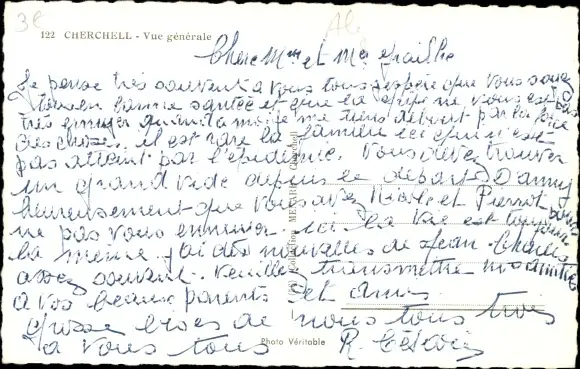 3€
122 CHERCHELL - Vue générale
Chère Mme et Mr
Je pense très souvent a vous tous j'espère que vous soyez
tous en bonne santée et que la gripe ne vous est pas
très quand a moi je me tiens debout par la force
des choses. il est rare la famille ici qui n'est
pas atteint par l'épidémie. Vous devez trouver
un grand vide depuis le départ Danny
heureusement que vous avez Nicole et Pierrot pour
ne pas vous ennuyer. ici la vie est toujours
la même. j'ai des nouvelles de Jean Charles
assez souvent. Veuillez transmettre mes amitiés
a vos beaux parents et amis
grosse bises de nous tous trois
a vous tous R.
Photo Véritable
Cherchell